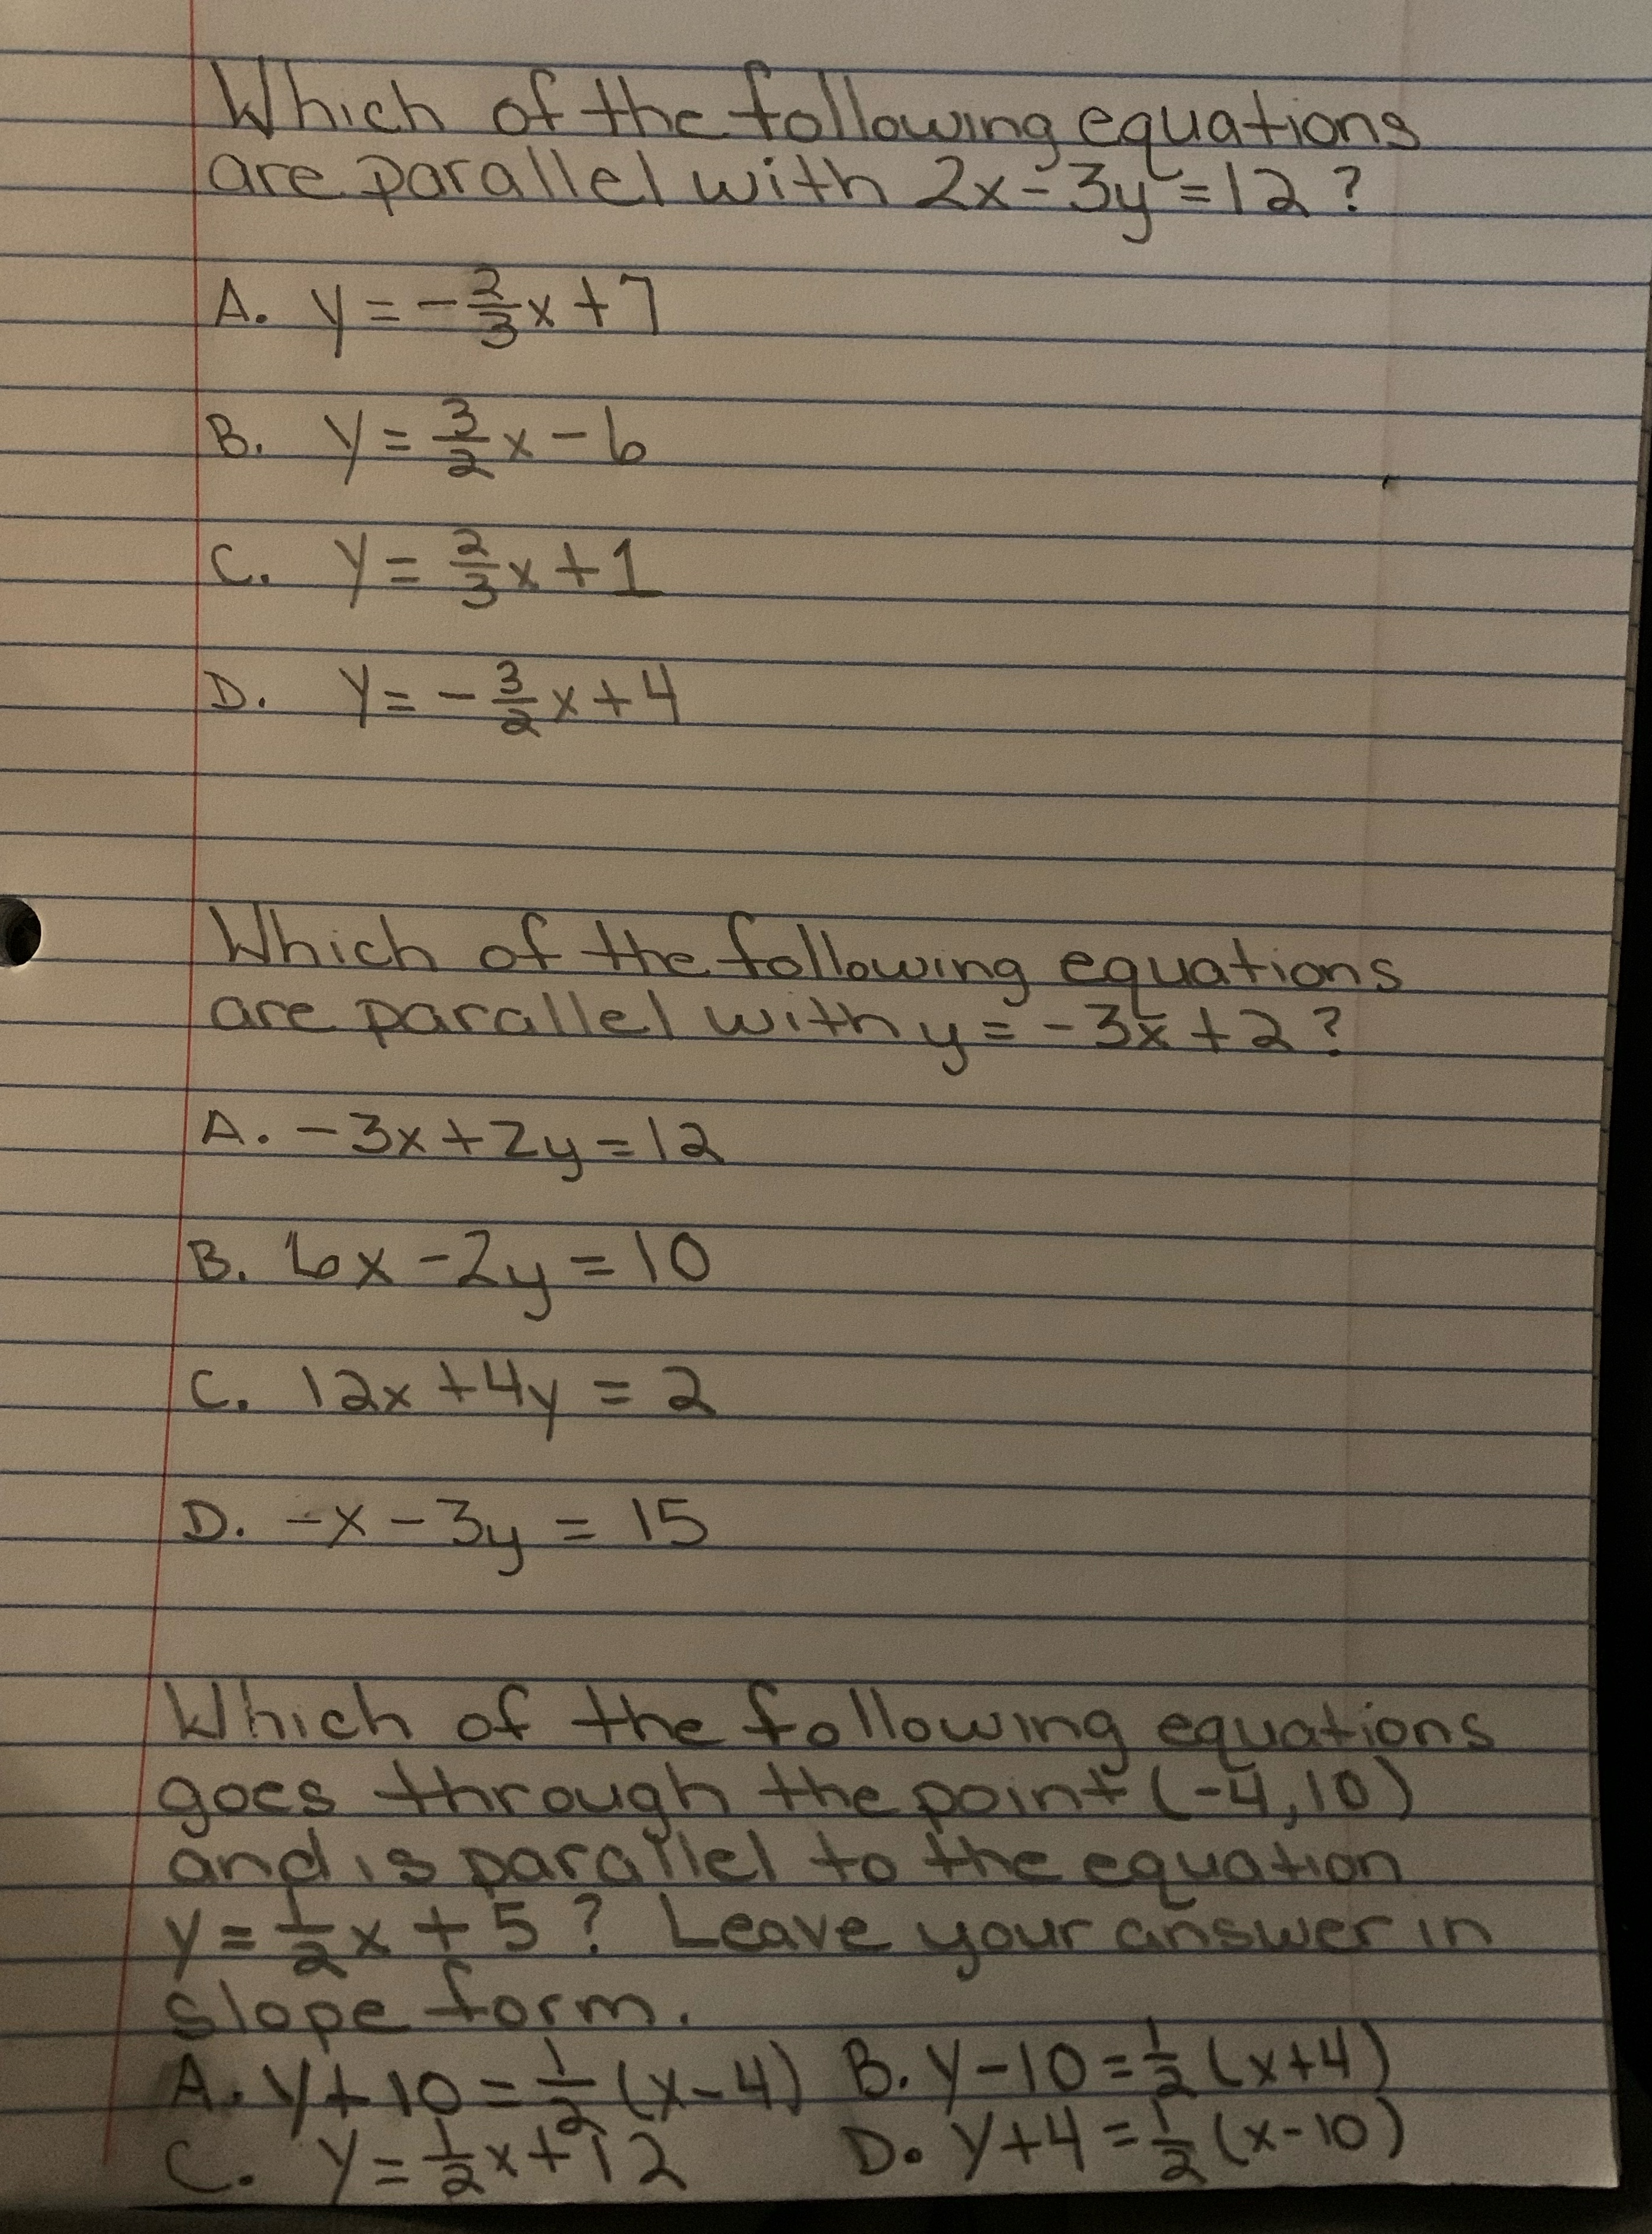 Which of the following equations
are parallel with 2x-3y=12?
A. y = -2/3x+7
B. y=3/2x-6
C. y=2/3x+1
D. y=-3/2x+4
Which of the following equations
are parallel with y=-3x+2?
A. -3x+2y=12
B. 6x-2y=10
C. 12x+4y=2
D. -x-3y=15
Which of the following equations
goes through the point (-4,10)
and is parallel to the equation
y=1/2x+5? Leave your answer in
slope form.
A. y+10=1/2(x-4) B. y-10=1/2(x+4)
C. y=1/2x+12 D. y+4=1/2(x-10)